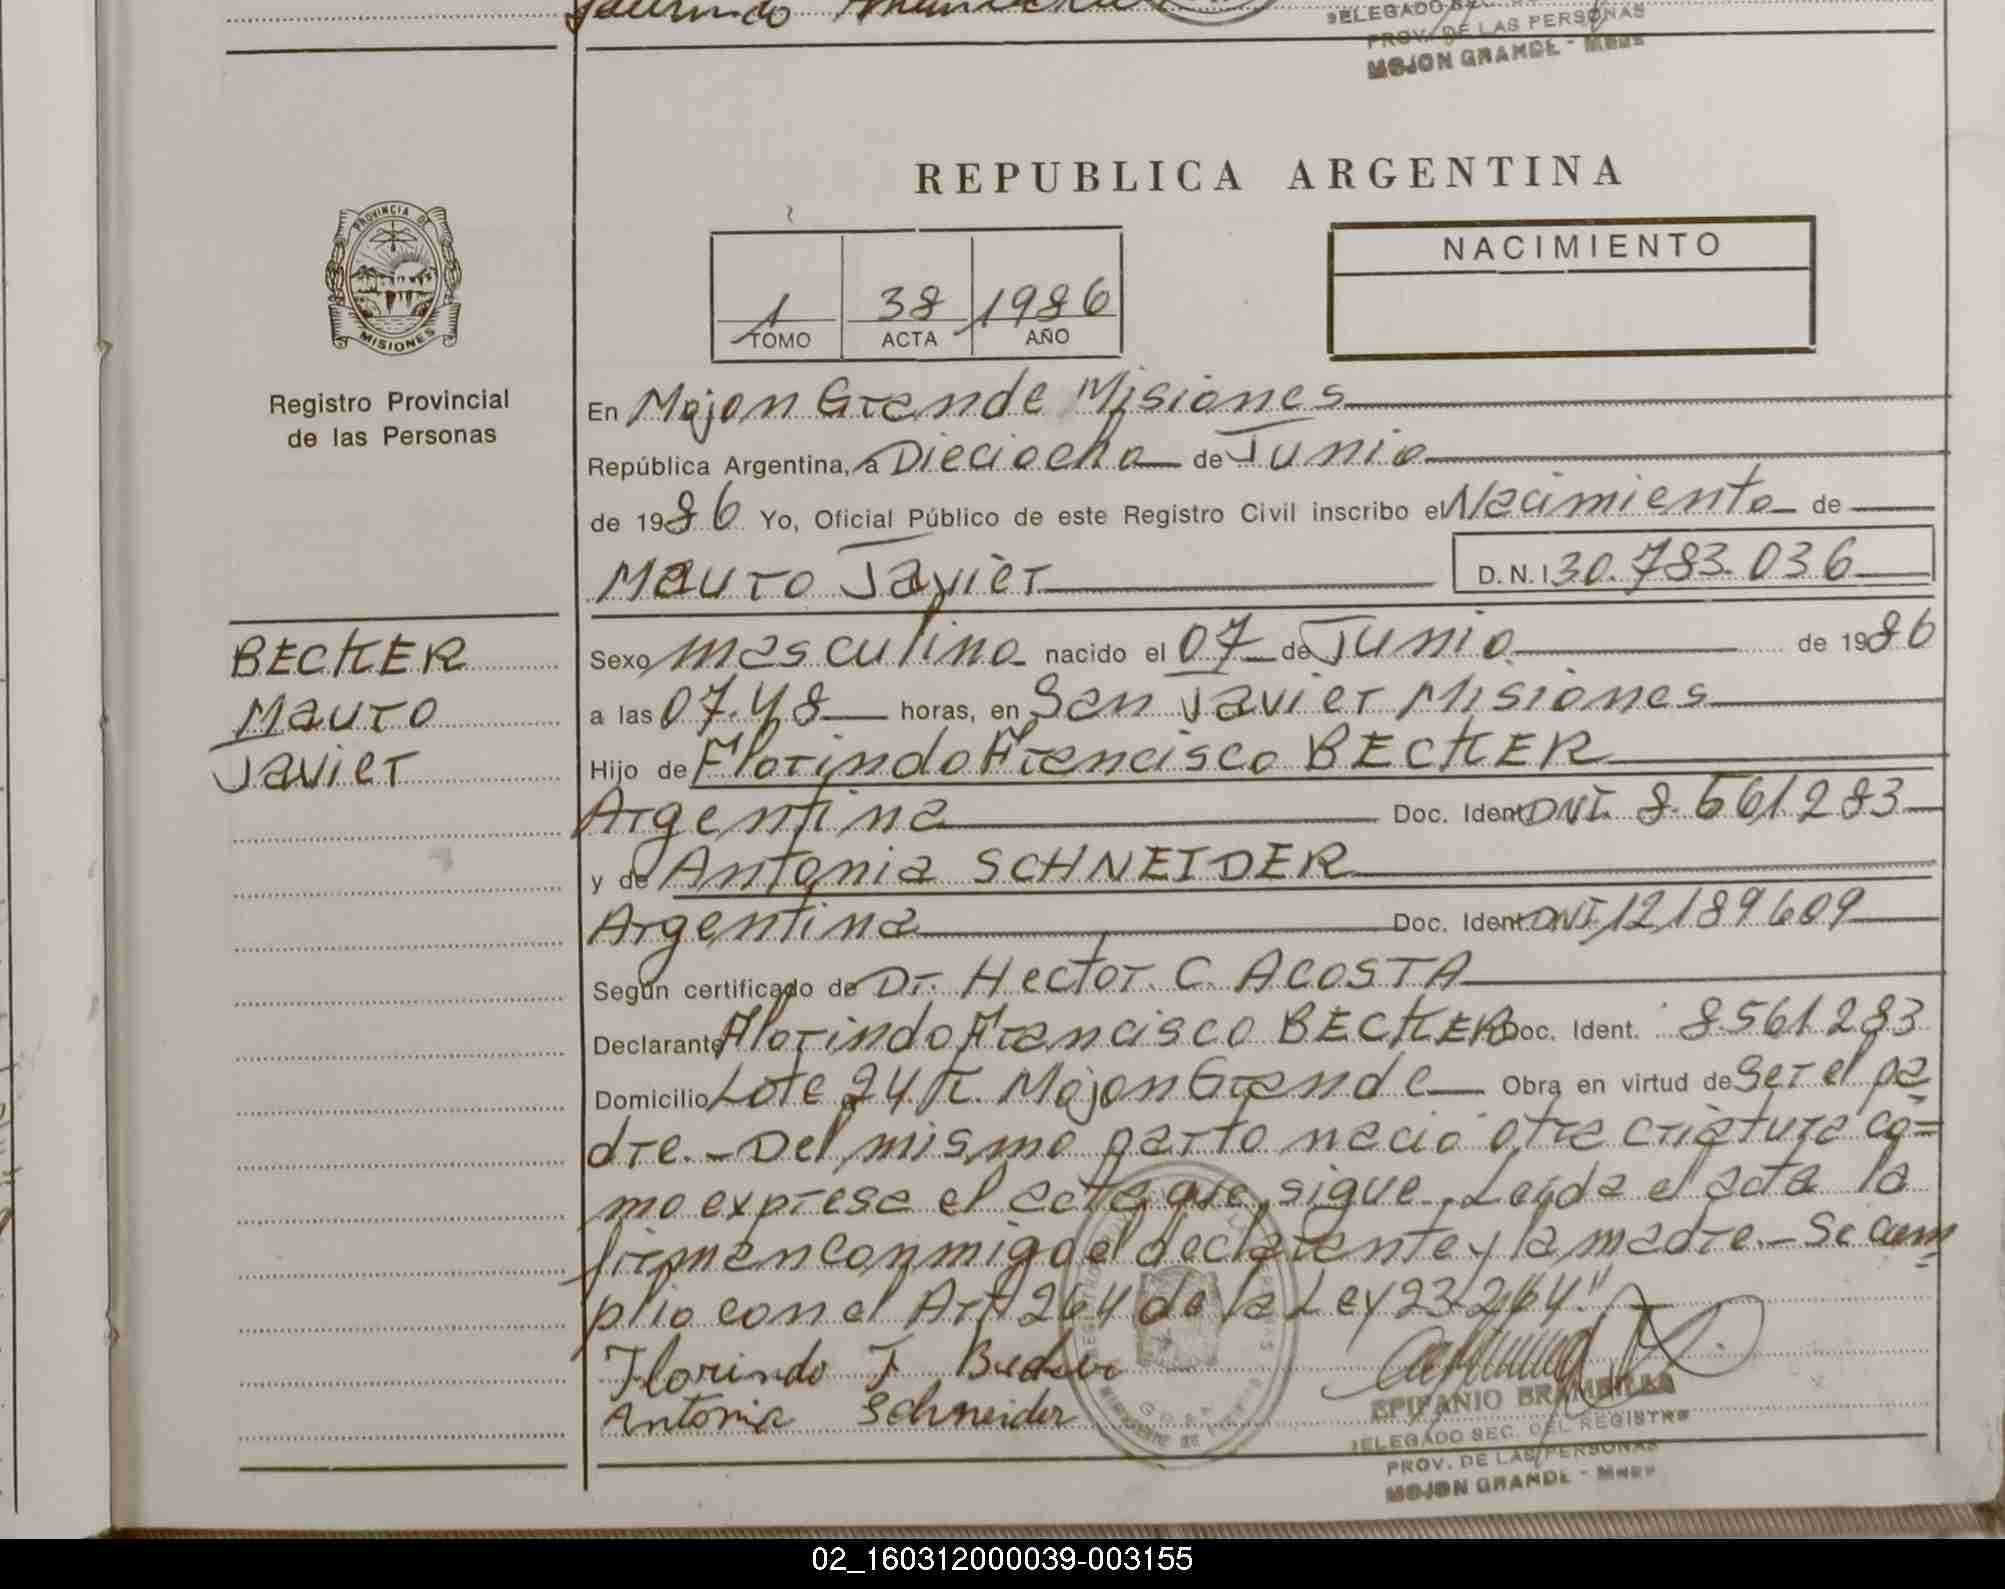 DELEGADO SEC.
PROV. DE LAS PERSONAS
MOJON GRANDE - Mnes
REPUBLICA ARGENTINA
PROVINCIA DE
MISIONES
Registro Provincial
de las Personas
1 38 1986
TOMO ACTA AÑO
NACIMIENTO
En Mojon Grande Misiones
República Argentina, a Dieciocho de Junio
de 1986 Yo, Oficial Público de este Registro Civil inscribo el Nacimiento de
Mauro Javier D.N.I 30.783.036
BECKER
Mauro
Javier
Sexo masculino nacido el 07 de Junio de 1986
a las 07.48 horas, en San Javier Misiones
Hijo de Florindo Francisco BECKER
Argentina Doc. Ident. DNI. 8.561.283
y de Antonia SCHNEIDER
Argentina Doc. Ident. DNI 12189609
Según certificado de Dr. Hector. C. ACOSTA
Declarante Florindo Francisco BECKER Doc. Ident. 8.561.283
Domicilio Lote 24. K. Mojon Grande Obra en virtud de Ser el pa
dre.- Del mismo parto nacio otra criatura co=
mo expresa el acta que sigue. Leída el acta la
firman conmigo el declarante y la madre.- Se cum
plio con el Art 264 de la Ley 23.264."
Florindo F Becker
Antonia Schneider
EPIFANIO BRAMBILLA
DELEGADO SEC. DEL REGISTRO
PROV. DE LAS PERSONAS
MOJON GRANDE - Mnes
02_160312000039-003155